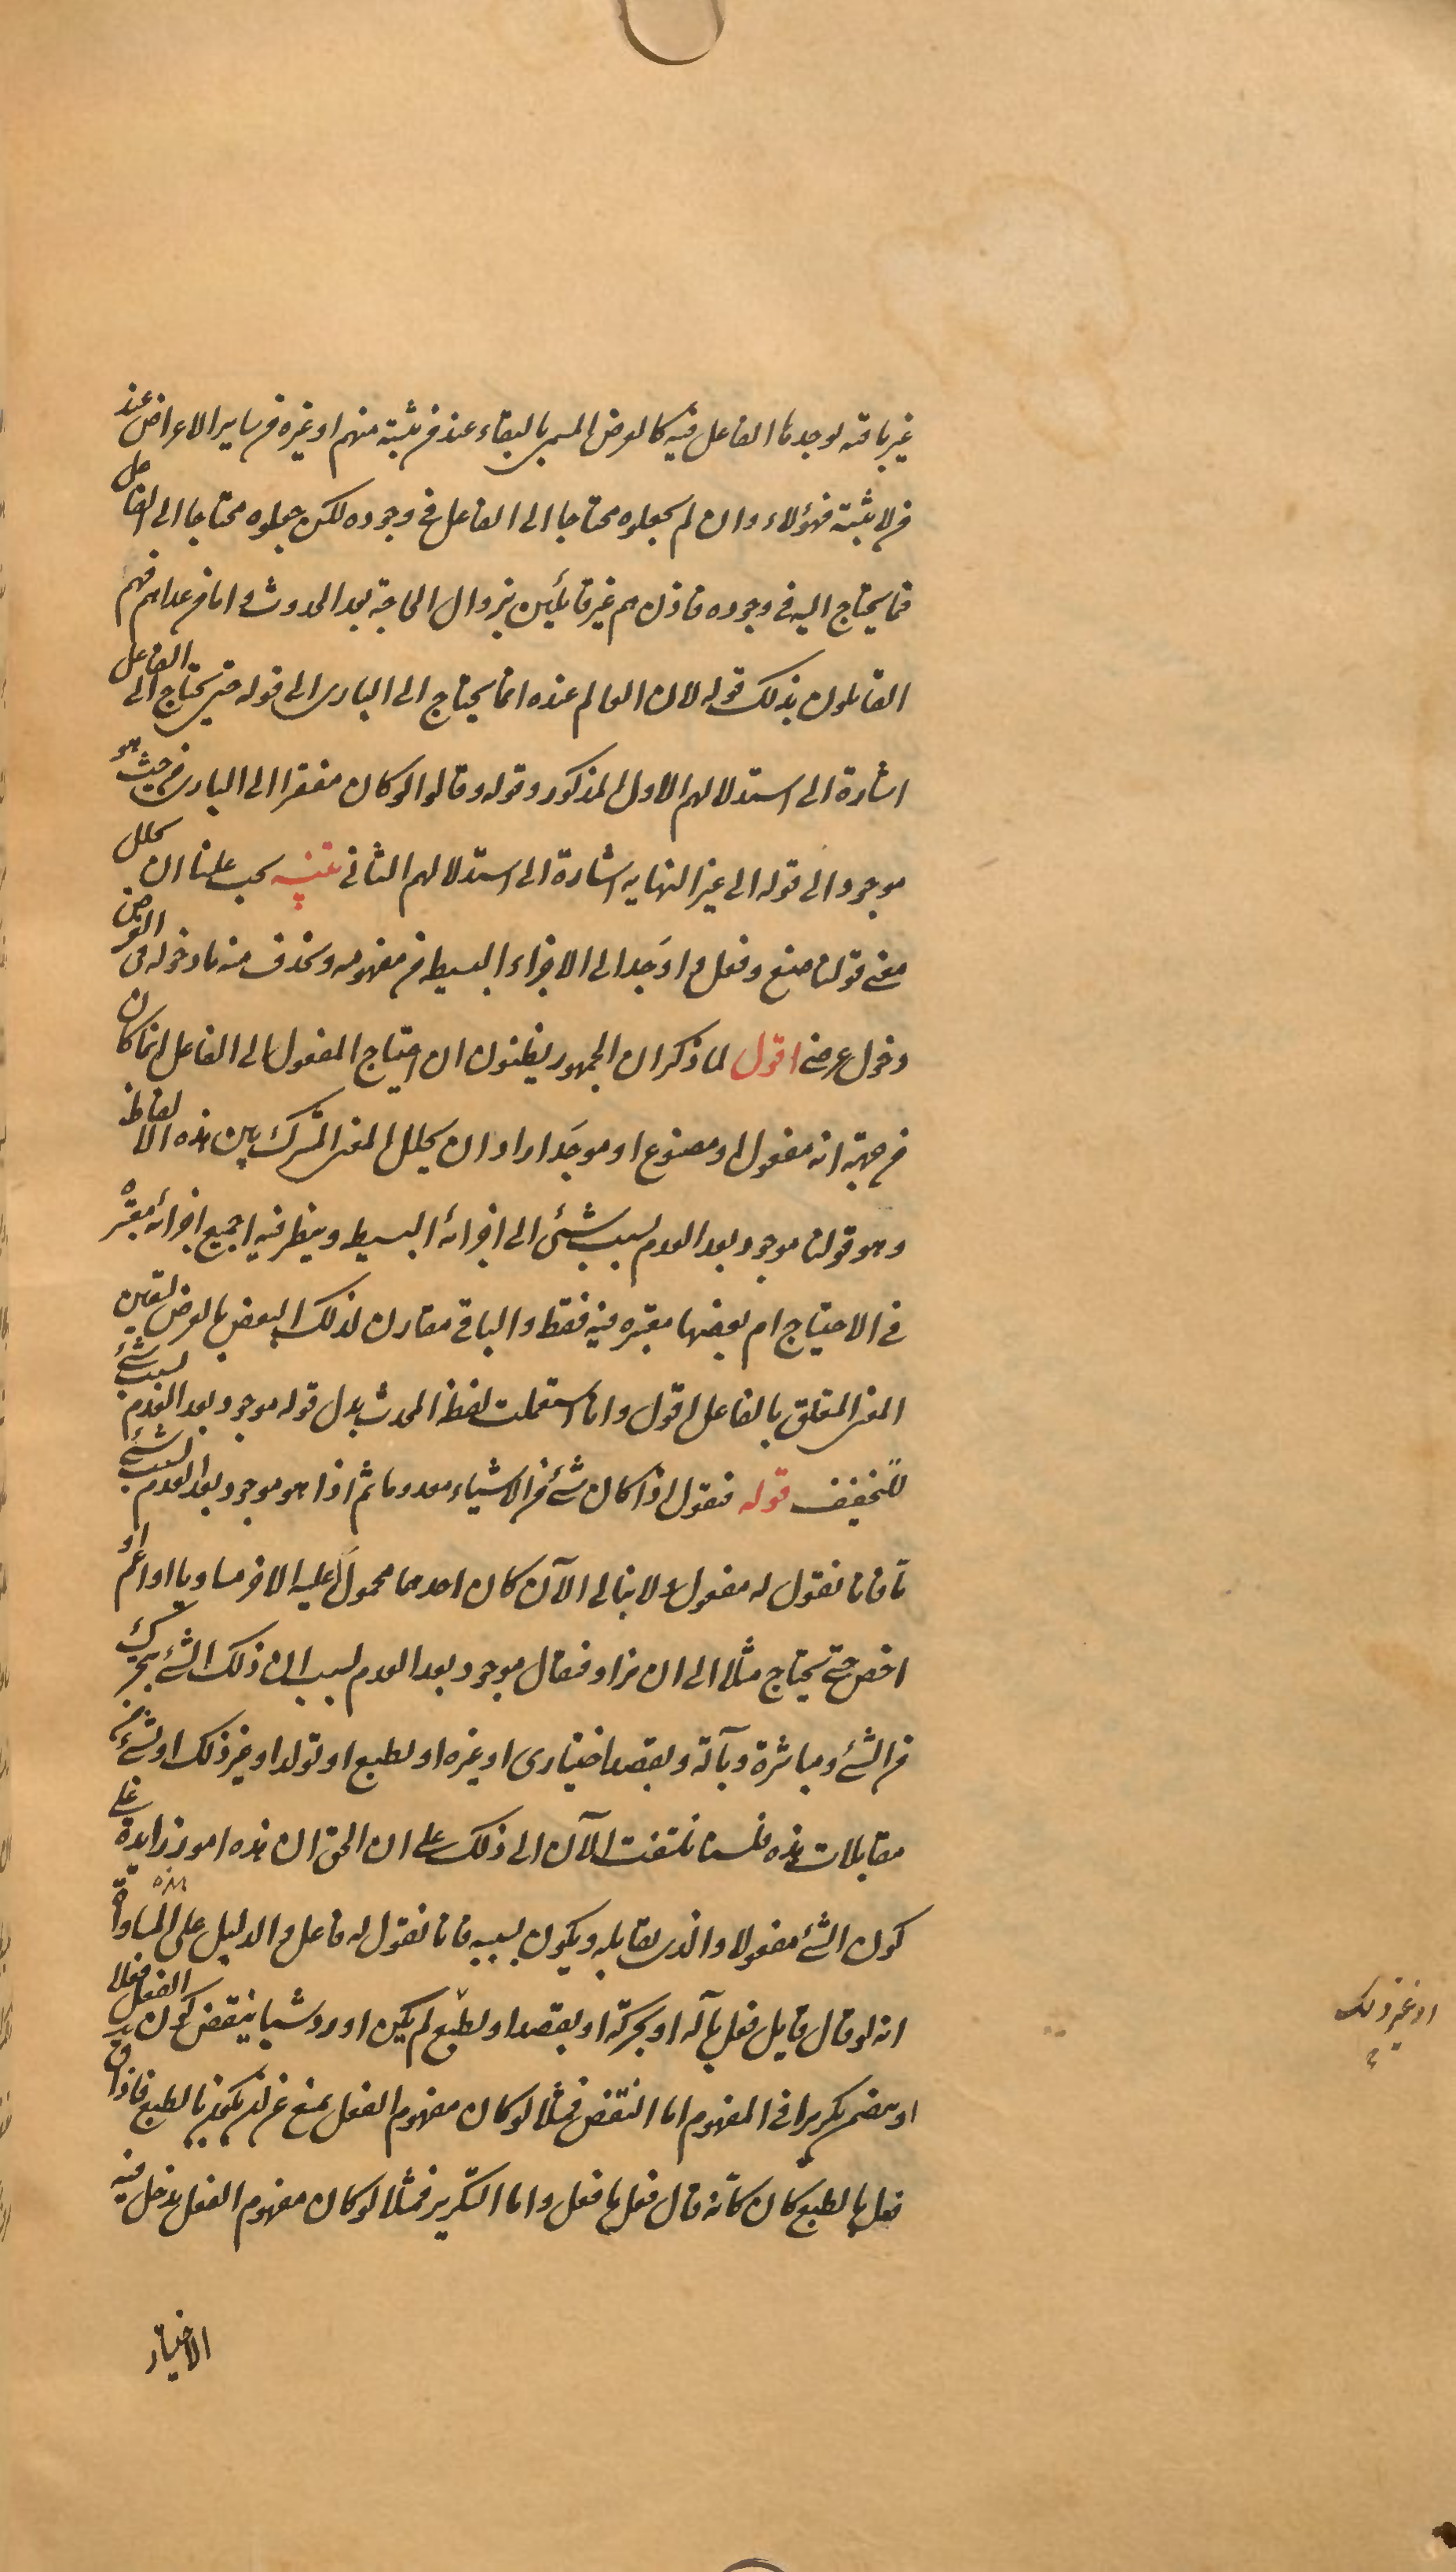 غير باقية يوجدها الفاعل فيه كالعرض المسمى بالبقاء عند من يثبته منهم او غيره من ساير الاعراض عند
من لا يثبته فهؤلاء وان لم يجعلوه محتاجا الى الفاعل فى وجوده لكن جعلوه محتاجا الى الفاعل
فيما يحتاج اليه فى وجوده فاذن هم غير قائلين بزوال الحاجة بعد الحدوث واما من عداهم فهم
القائلون بذلك قوله لان العالم عنده انما يحتاج الى البارى الى قوله حتى يحتاج الى الفاعل
اشارة الى استدلالهم الاول المذكور وقوله وقالوا لو كان مفتقرا الى البارى من حيث هو
موجود الى قوله الى غير النهايه اشارة الى استدلالهم الثانى تنبيه يجب علينا ان نحلل
معنى قولنا صنع وفعل و اوجد الى الاجزاء البسيطه من مفهومه ونحذف منه ما دخوله فى الغرض
دخول عرضى اقول لما ذكر ان الجمهور يظنون ان احتياج المفعول الى الفاعل انما كان
من جهة انه مفعول او مصنوع او موجد اراد ان يحلل المعنى المشترك بين هذه الالفاظ
وهو قولنا موجود بعد العدم بسبب شئ الى اجزائه البسيط وينظر فيه اجميع اجزائه معتبرة
فى الاحتياج ام بعضها معتبره فيه فقط والباقى مقارن لذلك البعض بالعرض ليتعين
المعنى المتعلق بالفاعل اقول وانا استعملت لفظ المحدث بدل قوله موجود بعد العدم بسبب شئ
للتخفيف قوله فنقول اذا كان شئ من الاشياء معدوما ثم اذا هو موجود بعد العدم بسبب شئ
ما فانا نقول له مفعول ولا نبالى الآن كان احدهما محمولا عليه الاخر مساويا او اعم او
اخص حتى يحتاج مثلا الى ان يزاد فيقال موجود بعد العدم بسبب ان ذلك الشئ بتحرك
من الشئ ومباشرة وبآلة وبقصد اختيارى او غيره او بطبع او تولد او غير ذلك او بشئ من
مقابلات هذه فلسنا نلتفت الآن الى ذلك على ان الحق ان هذه امور زايدة على
كون الشئ مفعولا والذى يقابله ويكون بسببه فانا نقول له فاعل و الدليل على المساواة
انه لو قال قايل فعل بآلة او بحركة او بقصد او بطبع لم يكن اورد شيئا ينقض كون الفعل فعلا
او يتضمن تكريرا فى المفهوم اما النقض فمثلا لو كان مفهوم الفعل يمنع عن ان يكون بالطبع فاذا ق
فعل بالطبع كان كانه قال فعل ما فعل واما التكرير فمثلا لو كان مفهوم الفعل يدخل فيه
الاختيار
او غير ذلك